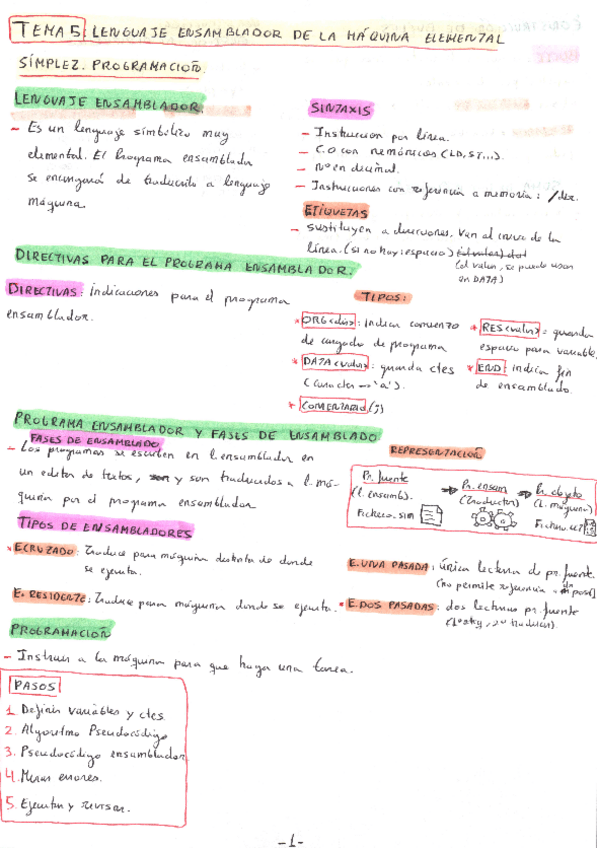 TEMA 5 LENGUAJE ENSAMBLADOR DE LA MÁQUINA ELEMENTAL
SÍMPLEZ. PROGRAMACIÓN.
LENGUAJE ENSAMBLADOR
- Es un lenguaje simbólico muy
elemental. El Programa ensamblador
se encargará de traducirlo a lenguaje
máquina.
SINTAXIS
- Instrucción por línea.
- C.O con nemónicos (LD, ST...).
- Nº en decimal.
- Instrucciones con referencia a memoria: /dir.
ETIQUETAS
- Sustituyen a direcciones. Van al inicio de la
línea. (si no hay: espacio)
(el valor, se puede usar
en DATA)
DIRECTIVAS PARA EL PROGRAMA ENSAMBLADOR.
DIRECTIVAS: indicaciones para el programa
ensamblador.
TIPOS:
* ORG <dir>: indicar comienzo
de cargado de programa
* DATA <valor>: guarda ctes
(caracter → 'a').
* COMENTARIO (;)
* RES <valor> = guardar
espacio para variable
* END: indica fin
de ensamblado.
PROGRAMA ENSAMBLADOR Y FASES DE ENSAMBLADO
FASES DE ENSAMBLADO
- Los programas se escriben en l. ensamblador en
un editor de textos, y son traducidos a l. má-
quina por el programa ensamblador
REPRESENTACIÓN
Pr. fuente
(l. ensamb).
Fichero.sim
Pr. ensam
(Traductor)
Pr. objeto
(l. máquina)
TIPOS DE ENSAMBLADORES
* E CRUZADO: Traduce para máquina distinta de donde
se ejecuta.
E. RESIDENTE: Traduce para máquina donde se ejecuta.
E. UNA PASADA: única lectura de pr. fuente.
(no permite referencia
* E. DOS PASADAS: dos lecturas pr. fuente
PROGRAMACIÓN
- Instruir a la máquina para que haga una tarea.
PASOS
1. Definir variables y ctes.
2. Algoritmo Pseudocódigo
3. Pseudocódigo ensamblador
4. Mirar errores.
5. Ejecutar y revisar.
-1-